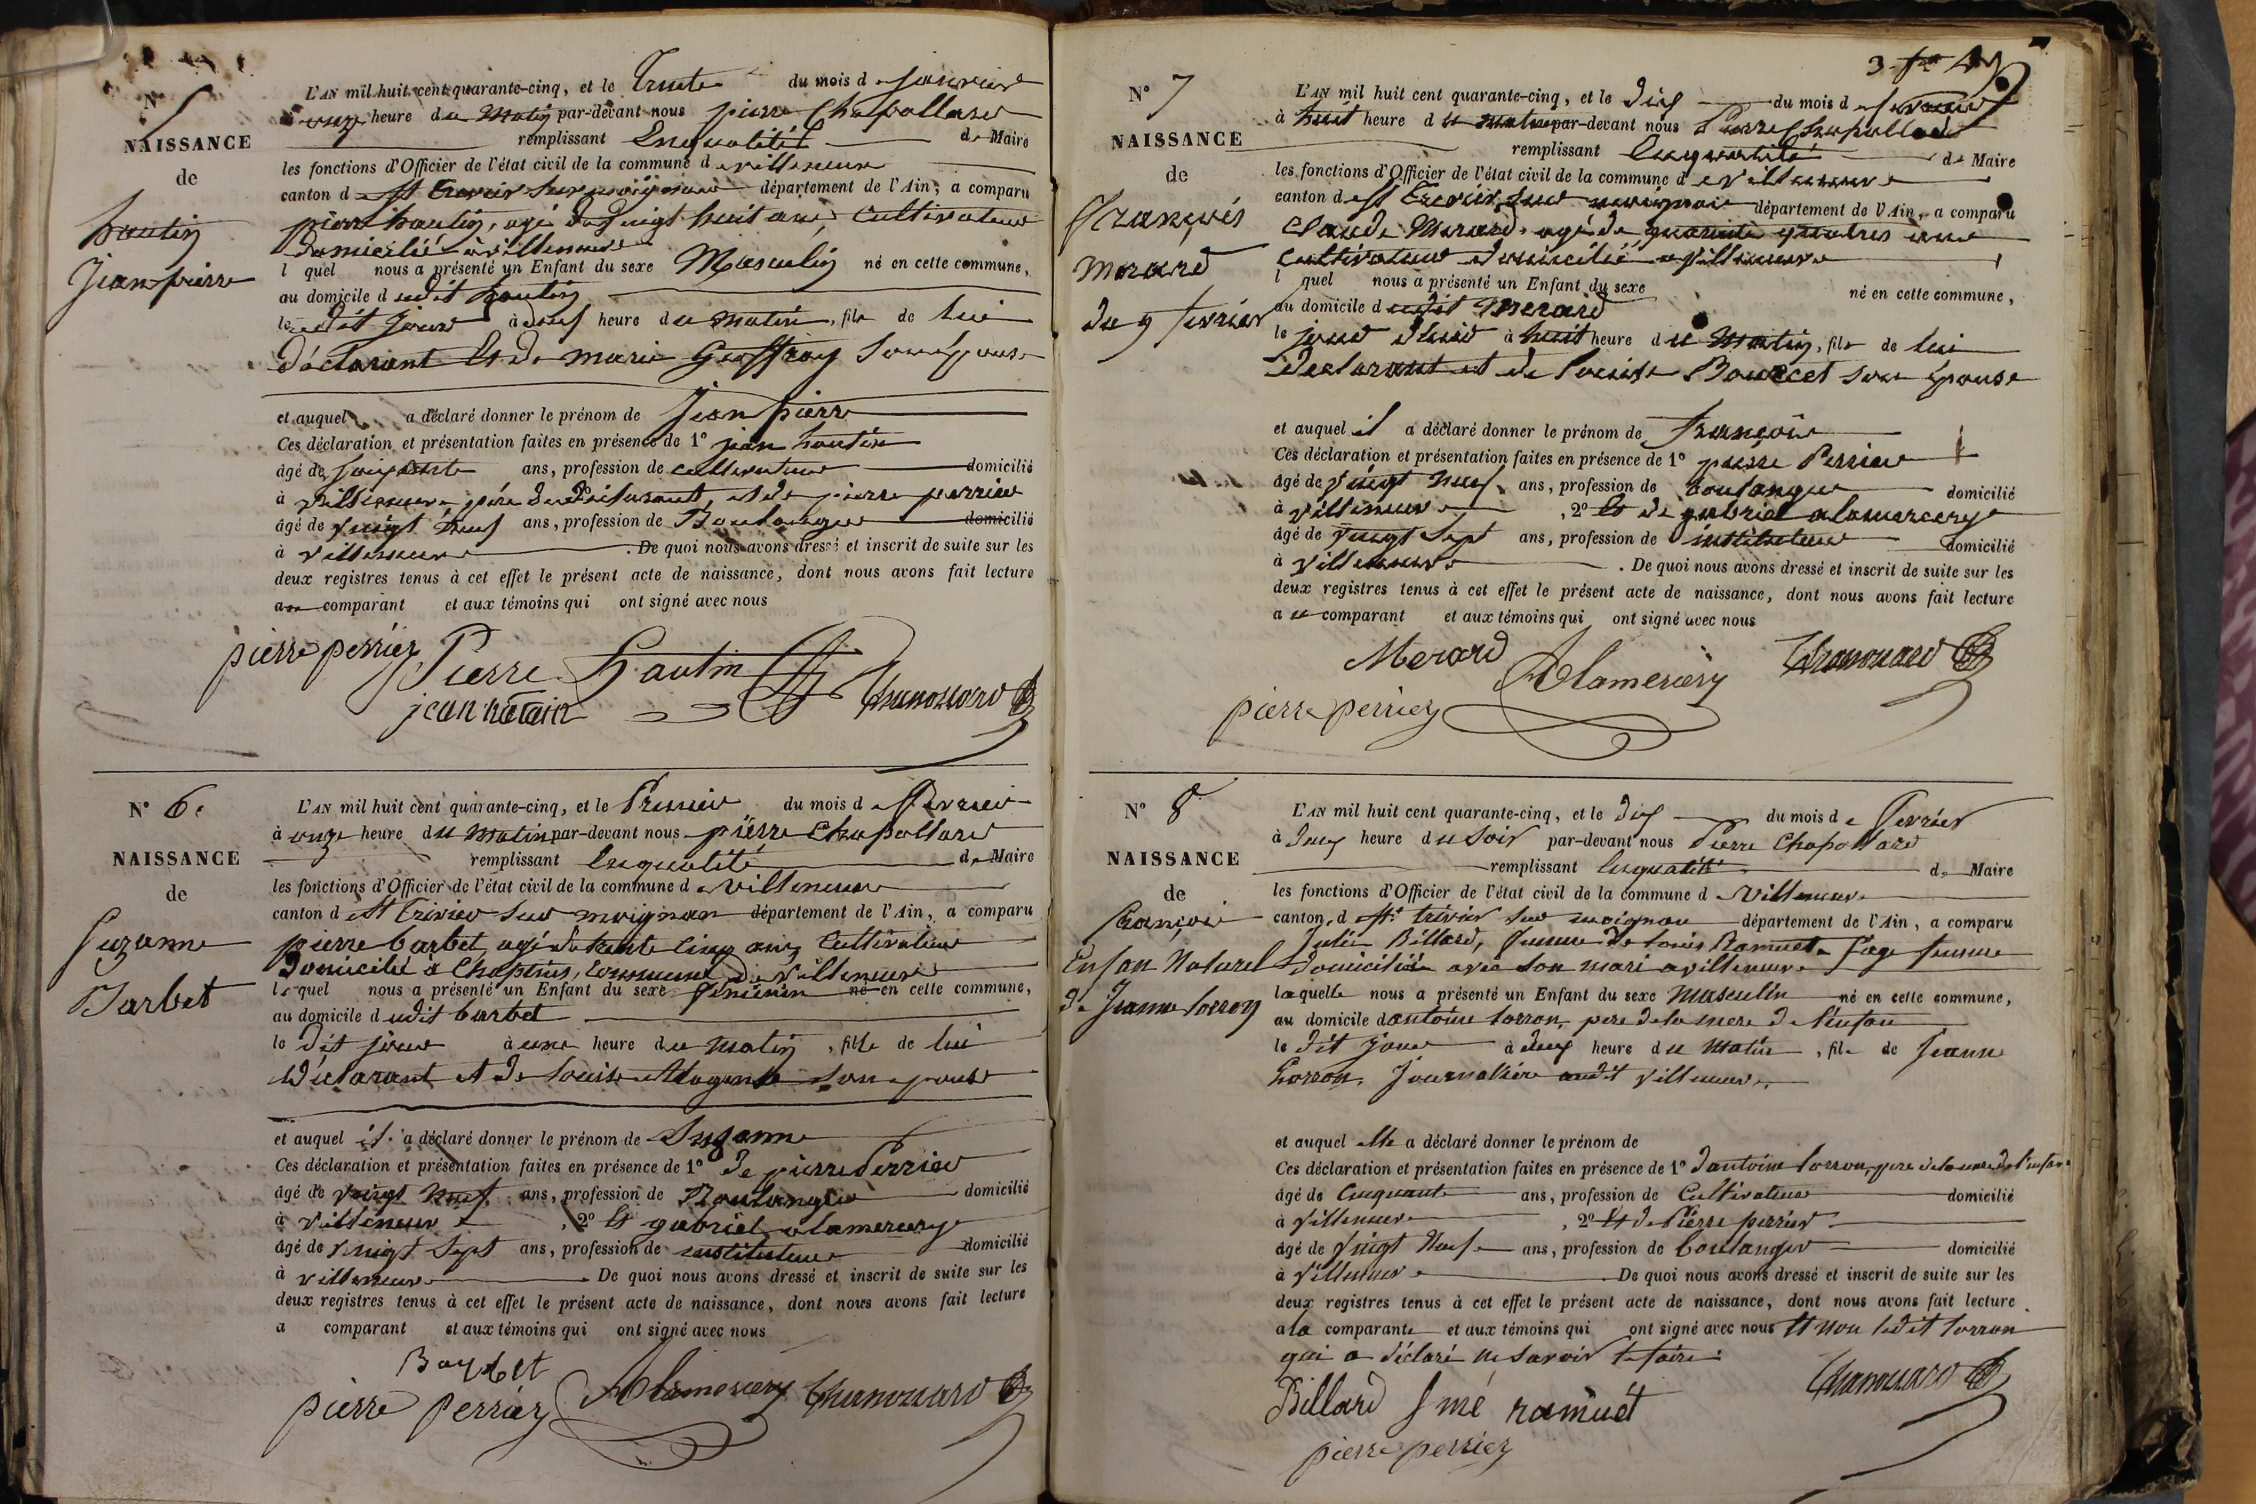 N° 5
NAISSANCE
de
hautin
Jean pierre
L'AN mil huit cent quarante-cinq, et le Trente du mois de Janvier
à onze heure du Matin par-devant nous pierre Chapollard
remplissant Enqualité de Maire
les fonctions d'Officier de l'état civil de la commune de villeneuve
canton de St Trivier sur moignan département de l'Ain, a comparu
pierre hautin, agé de vingt huit ans, cultivateur
domicilié à villeneuve
lequel nous a présenté un Enfant du sexe Masculin né en cette commune,
au domicile dudit hautin
le dit jour à neuf heure du matin, fils de lui
déclarant Et de marie Geoffray son Epouse
et auquel a déclaré donner le prénom de Jean pierre
Ces déclaration et présentation faites en présence de 1° jean hautin
âgé de soixante ans, profession de cultivateur domicilié
à villeneuve, père du déclarant, et de pierre perrier
âgé de vingt neuf ans, profession de Boulanger domicilié
à villeneuve . De quoi nous avons dressé et inscrit de suite sur les
deux registres tenus à cet effet le présent acte de naissance, dont nous avons fait lecture
au comparant et aux témoins qui ont signé avec nous
pierre perrier Pierre hautin
jean hautain
N° 6
NAISSANCE
de
Suzanne
Barbet
L'AN mil huit cent quarante-cinq, et le Premier du mois de Fevrier
à onze heure du Matin par-devant nous pierre Chapollard
remplissant Enqualité de Maire
les fonctions d'Officier de l'état civil de la commune de villeneuve
canton de St Trivier sur moignan département de l'Ain, a comparu
pierre barbet, agé de trente cinq ans cultivateur
domicilié à Chaptiers, commune de villeneuve
lequel nous a présenté un Enfant du sexe féminin né en cette commune,
au domicile dudit barbet
le dit jour à une heure du matin, fille de lui
Déclarant et de Louise son epouse
et auquel il a déclaré donner le prénom de Suzanne
Ces déclaration et présentation faites en présence de 1° de pierre Perrier
âgé de vingt neuf ans, profession de Boulanger domicilié
à villeneuve , 2° Et gabriel alamercery
âgé de vingt sept ans, profession de instituteur domicilié
à villeneuve . De quoi nous avons dressé et inscrit de suite sur les
deux registres tenus à cet effet le présent acte de naissance, dont nous avons fait lecture
a comparant et aux témoins qui ont signé avec nous
Barbet
pierre perrier Alamercery
3
N° 7
NAISSANCE
de
François
Merard
du 9 fevrier
L'AN mil huit cent quarante-cinq, et le dix du mois de fevrier
à huit heure du matin par-devant nous Pierre Chapollard
remplissant Enqualité de Maire
les fonctions d'Officier de l'état civil de la commune de villeneuve
canton de St Trivier sur moignan département de l'Ain, a comparu
Claude Merard, agé de quarante quatres ans
cultivateur domicilié à villeneuve
lquel nous a présenté un Enfant du sexe né en cette commune,
au domicile dudit Merard
le jour d'hier à huit heure du Matin, fils de lui
déclarant et de Louise Bourcet son épouse
et auquel il a déclaré donner le prénom de françois
Ces déclaration et présentation faites en présence de 1° pierre Perrier
âgé de vingt neuf ans, profession de boulanger domicilié
à villeneuve , 2° Et de gabriel alamercery
âgé de vingt sept ans, profession de instituteur domicilié
à villeneuve . De quoi nous avons dressé et inscrit de suite sur les
deux registres tenus à cet effet le présent acte de naissance, dont nous avons fait lecture
au comparant et aux témoins qui ont signé avec nous
Merard Alamercery
pierre perrier
N° 8
NAISSANCE
de
François
Enfan Naturel
de Jeanne Corron
L'AN mil huit cent quarante-cinq, et le dix du mois de Fevrier
à deux heure du soir par-devant nous Pierre Chapollard
remplissant Enqualité de Maire
les fonctions d'Officier de l'état civil de la commune de villeneuve
canton de St trivier sur moignan département de l'Ain, a comparu
Julie Billard, femme de Louis Ramuet, sage femme
domiciliée avec son mari à villeneuve
laquelle nous a présenté un Enfant du sexe Masculin né en cette commune,
au domicile d'antoine Corron, pere de la mere de l'enfan
le dit jour à deux heure du Matin, fils de Jeanne
Corron, Journalière audit villeneuve
et auquel elle a déclaré donner le prénom de
Ces déclaration et présentation faites en présence de 1° d'antoine Corron, pere de la mere de l'enfan
âgé de Cinquante ans, profession de Cultivateur domicilié
à villeneuve , 2° Et de Pierre perrier
âgé de vingt Neuf ans, profession de boulanger domicilié
à villeneuve . De quoi nous avons dressé et inscrit de suite sur les
deux registres tenus à cet effet le présent acte de naissance, dont nous avons fait lecture
a la comparante et aux témoins qui ont signé avec nous Et non ledit Corron
qui a déclaré ne savoir le faire.
Billard fme ramuet
pierre perrier